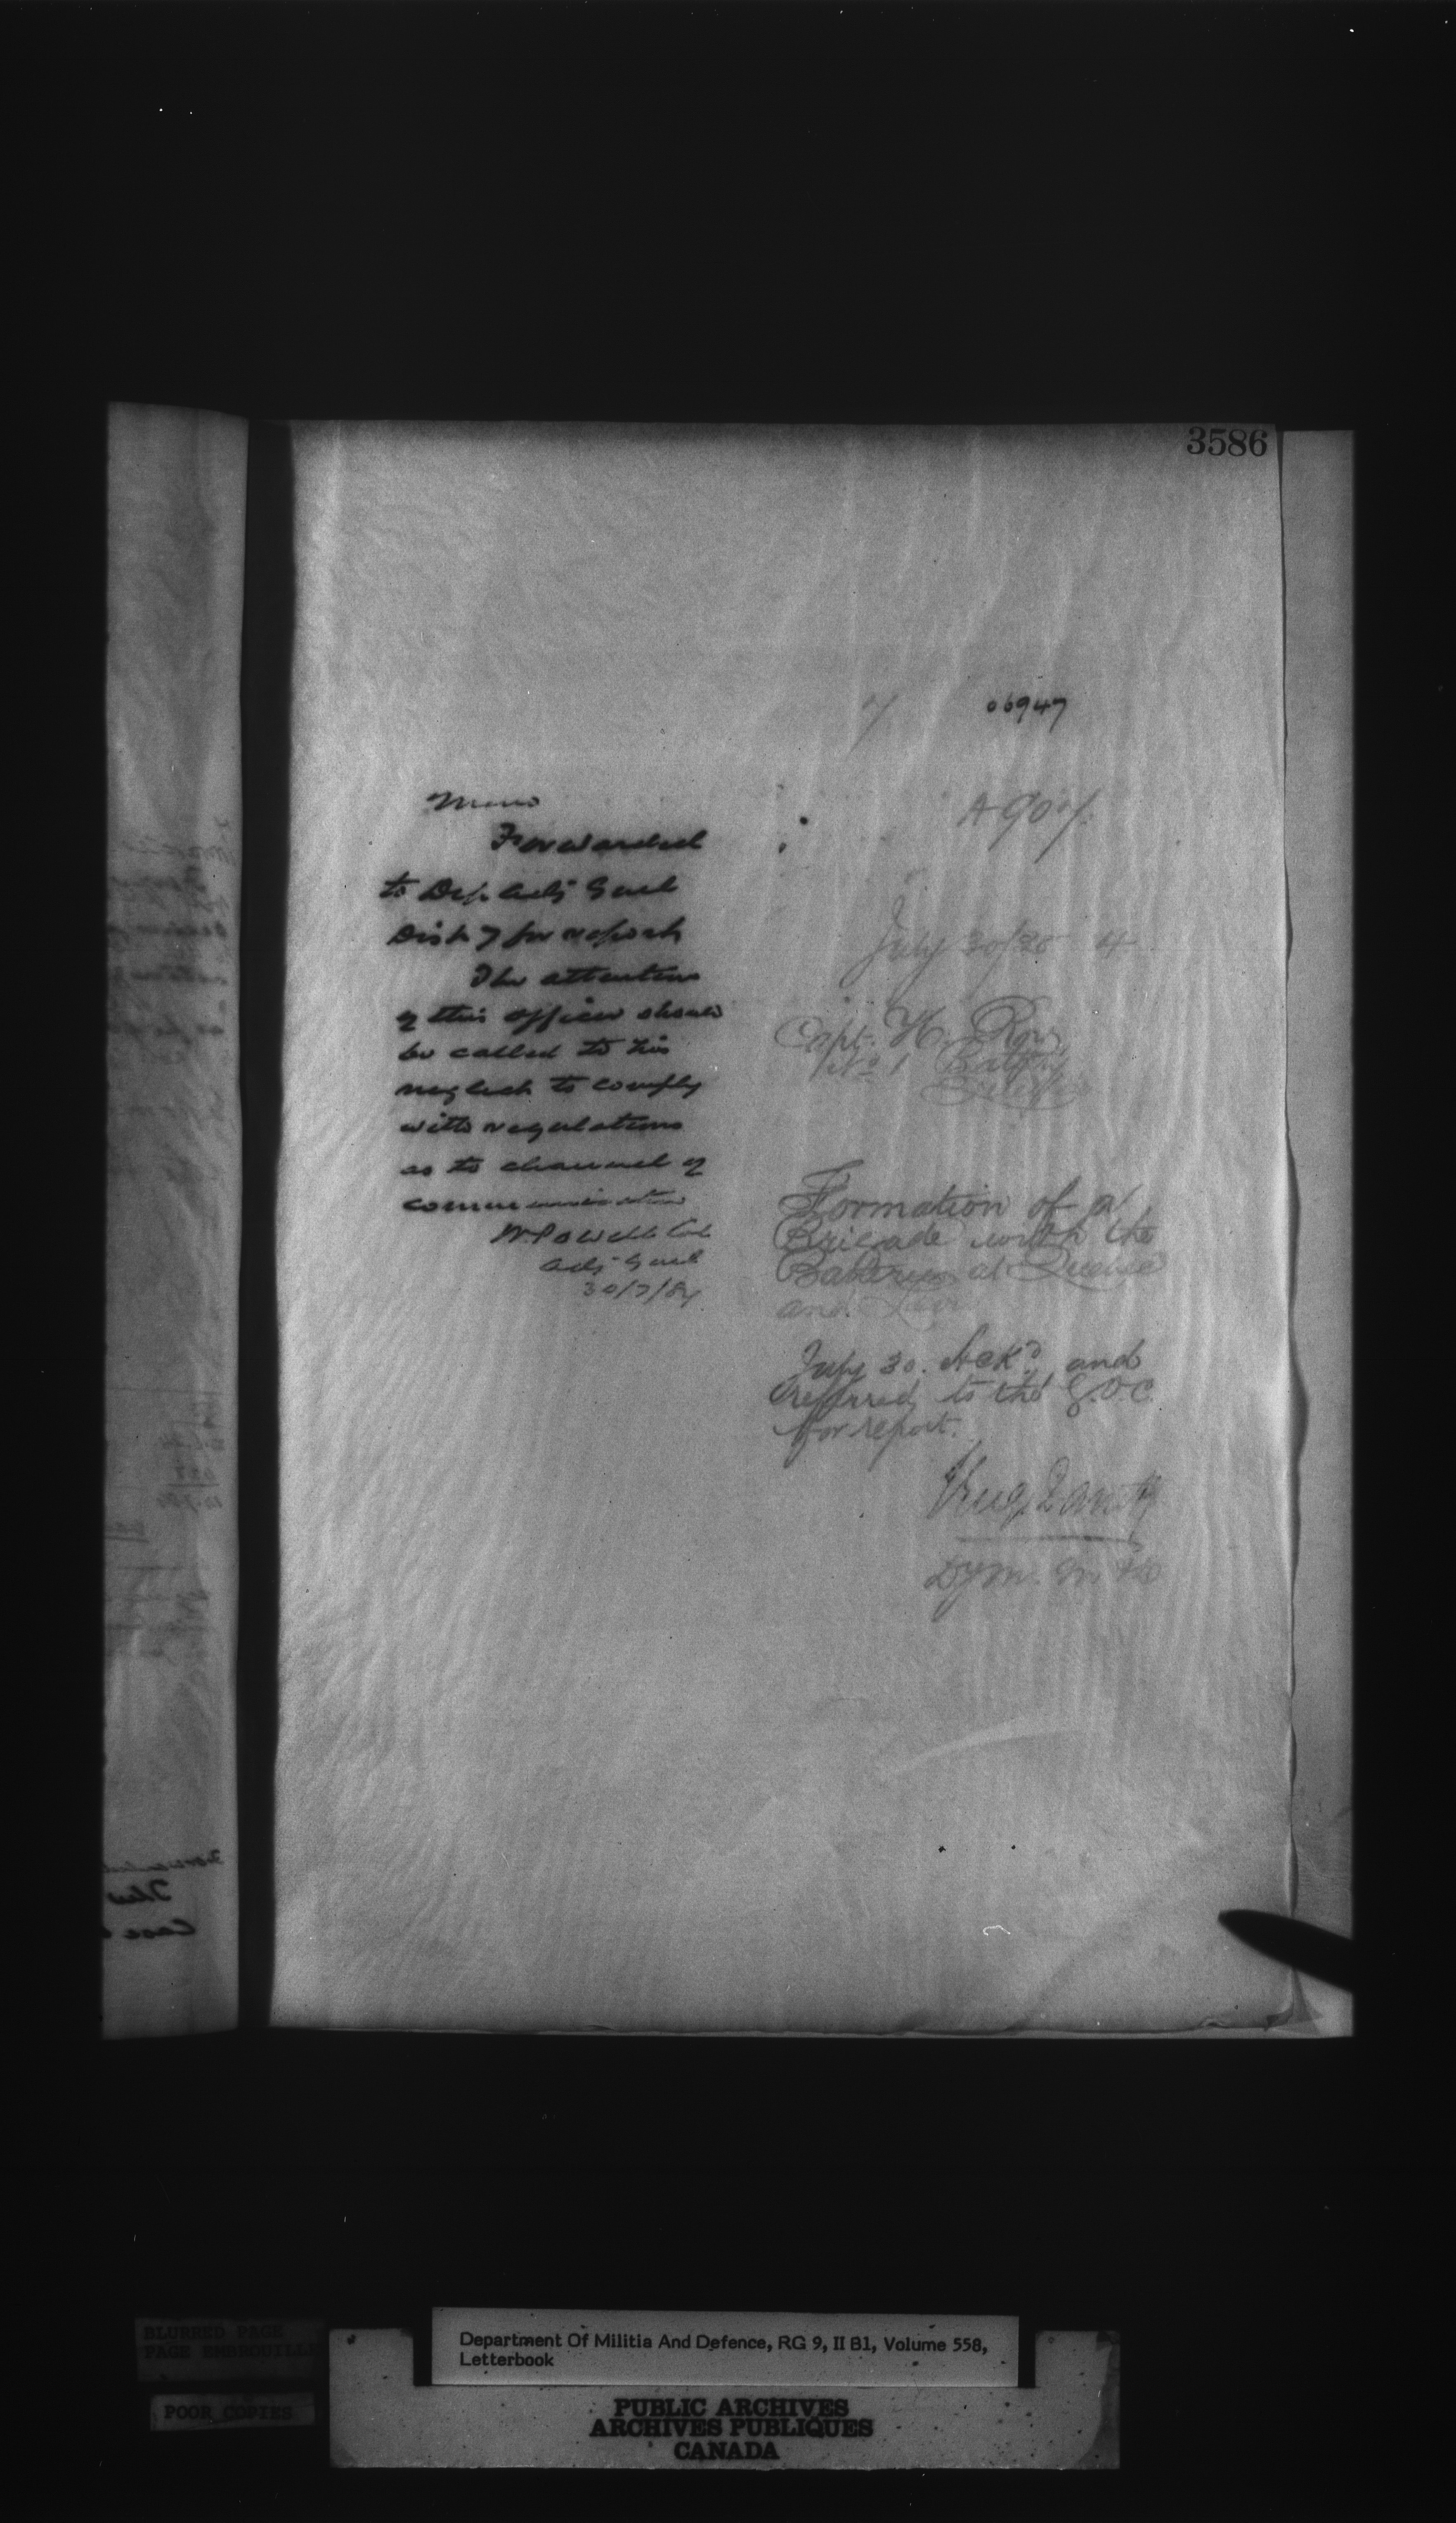 3586
06947
Memo
Forwarded
to Dep. Adj Genl
Dist 7 for report
The attention
of this officer should
be called to his
neglect to comply
with regulations
as to channel of
communication
W. Powell Col
Adj Genl
30/7/84
A 904
July 30/80 4
Capt. H. Roy
No 1 Battery
Formation of a
Brigade with the
Batteries at Quebec
and Levis
July 30. Ack'd and
referred to the G.O.C.
for report.
BLURRED PAGE
PAGE EMBROUILLEE
POOR COPIES
Department Of Militia And Defence, RG 9, II B1, Volume 558,
Letterbook
PUBLIC ARCHIVES
ARCHIVES PUBLIQUES
CANADA